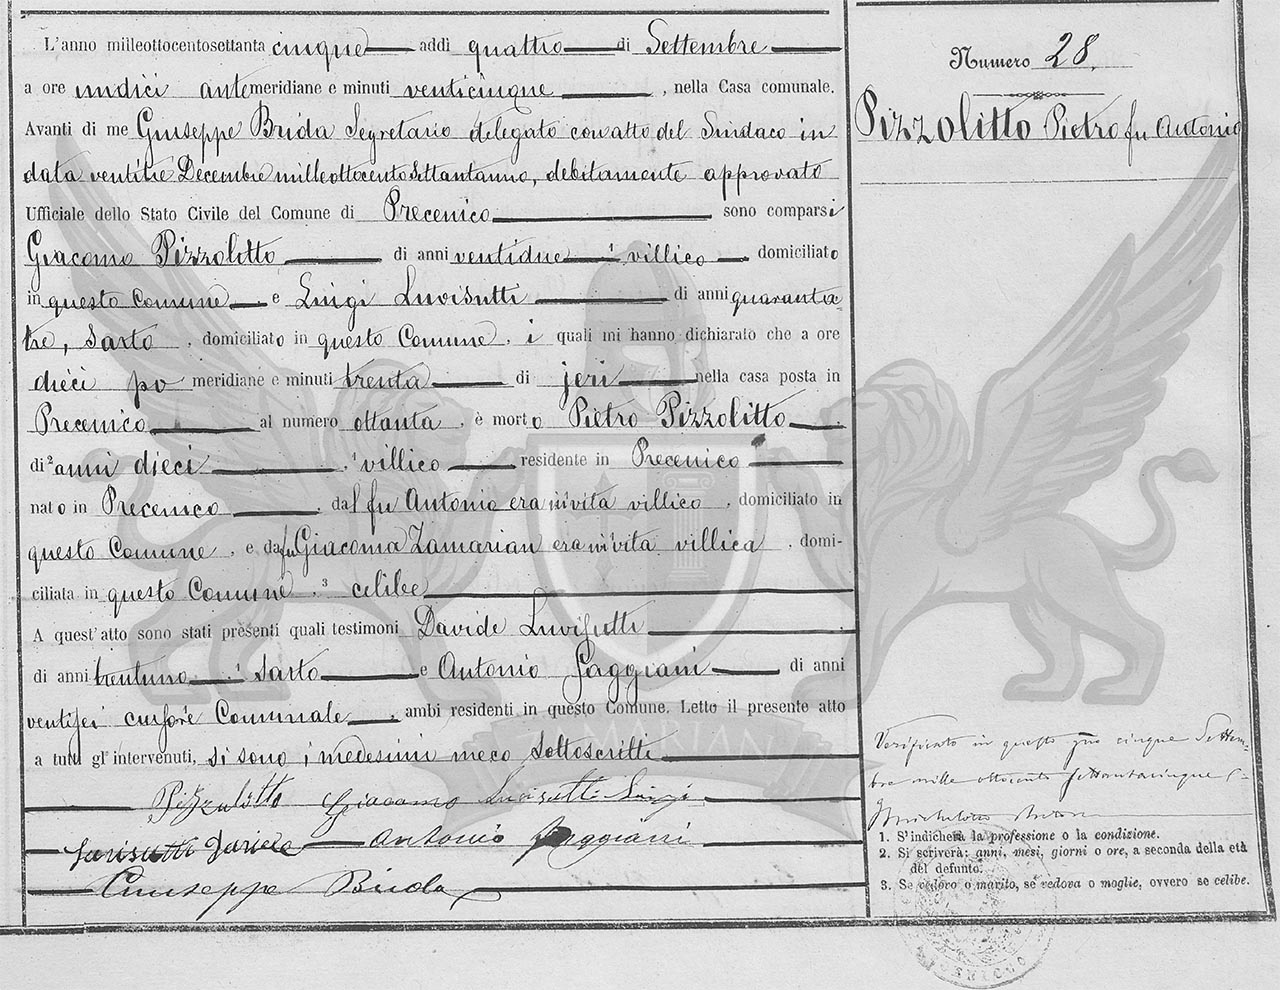 L'anno milleottocentosettanta cinque addi quattro di Settembre
a ore undici antemeridiane e minuti venticinque, nella Casa comunale.
Avanti di me Giuseppe Brida Segretario delegato con atto del Sindaco in
data ventitre Decembre mille ottocento settantanno, debitamente approvato
Ufficiale dello Stato Civile del Comune di Precenico sono comparsi
Giacomo Pizzolitto di anni ventidue ¹ villico domiciliato
in questo Comune e Luigi Luvisutti di anni quaranta
tre, Sarto, domiciliato in questo Comune, i quali mi hanno dichiarato che a ore
dieci po meridiane e minuti trenta di jeri nella casa posta in
Precenico al numero ottanta, è morto Pietro Pizzolitto
di ² anni dieci, ¹ villico residente in Precenico
nato in Precenico, dal fu Antonio era in vita villico, domiciliato in
questo Comune, e da fu Giacoma Zamarian era in vita villica, domi-
ciliata in questo Comune, ³ celibe
A quest'atto sono stati presenti quali testimoni Davide Luvisutti
di anni trentuno, ¹ Sarto e Antonio Gaggiani di anni
ventisei cursore Comunale, ambi residenti in questo Comune. Letto il presente atto
a tutti gl' intervenuti, si sono i medesimi meco sottoscritti
Pizzolitto Giacomo Luvisutti Luigi
Antonio Gaggiani
Giuseppe Brida
Numero 28.
Pizzolitto Pietro fu Antonio
Verificato in questo cinque Settem-
bre mille ottocento settantacinque
1. S'indicherà la professione o la condizione.
2. Si scriverà: anni, mesi, giorni o ore, a seconda della età
del defunto.
3. Se vedovo o marito, se vedova o moglie, ovvero se celibe.
ZAMARIAN